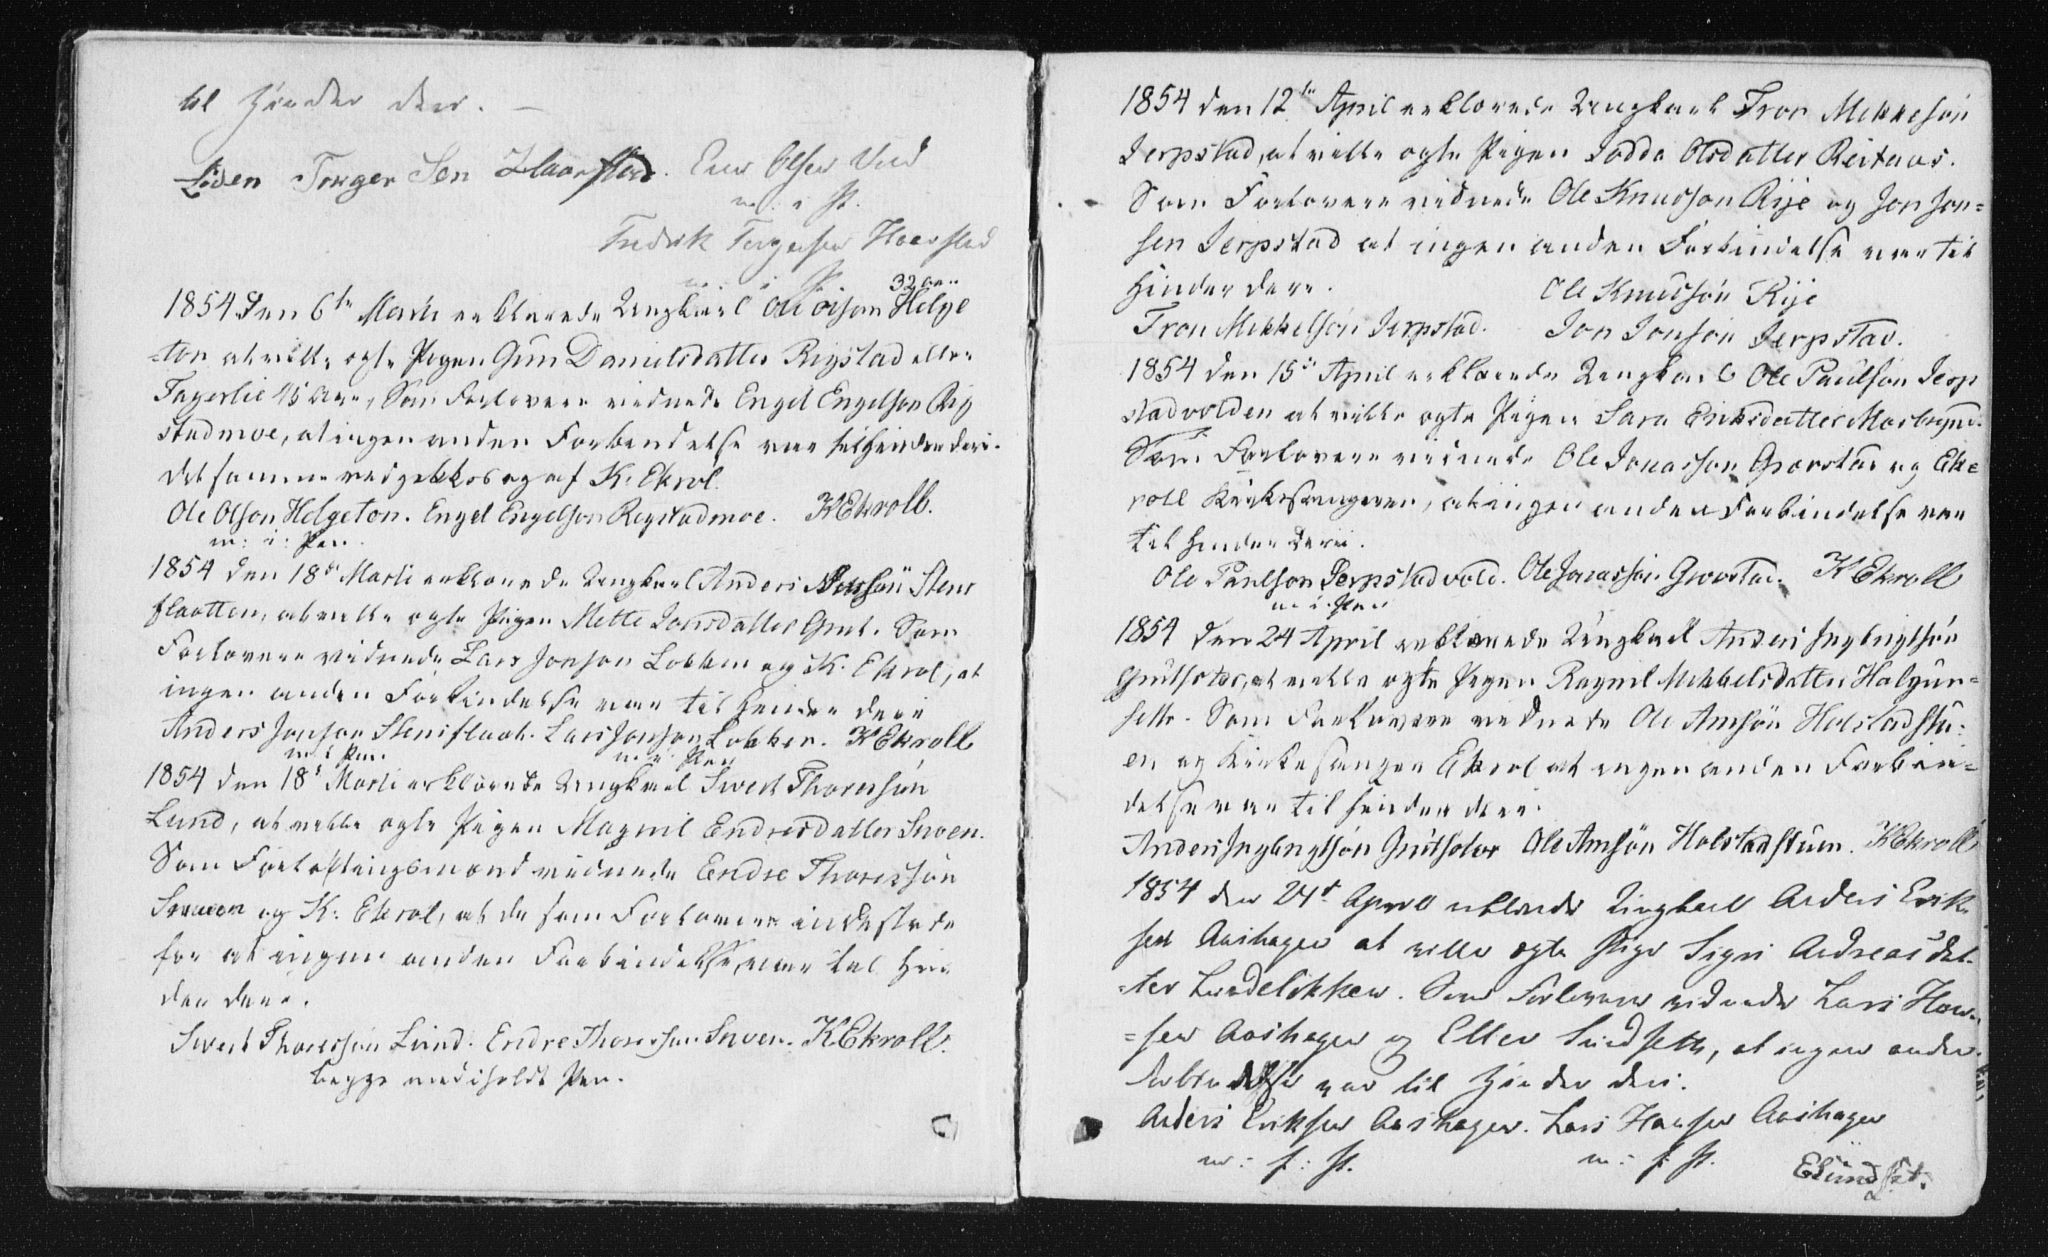 til Hinder deri. —
Loden Torger Sen Haarstad. Ener Olsen Vud
m: i P.
Fredrik Torgersen Haarstad
m: i P.
32 aar
1854 Den 6te Marti erklærede Ungkarl Ole Olson Helge
ton at ville egte Pigen Gun Danielsdatter Rigstad eller
Fagerlie 45 aar, Som Forlovere vidnede Engel Engelson Rig
stadmoe, at ingen anden Forbendelse var til Hinder deri.
det samme vedgikkes og af K. Ekrol.
Ole Olson Helgeton. Engel Engelson Regstadmoe. K Ekroll.
m: i: Pen.
1854 den 18de Marti erklærede Ungkarl Anders Jonson Stens
flaatten, at ville egte Pigen Mette Jonsdatter Grut. Som
Forlovere vidnede Lars Jonson Lokken og K. Ekrol, at
ingen anden Forbindelse var til Hinder deri
Anders Jonson Stensflaat. Lars Jonson Lokken. K Ekroll
m i Pen. m i Pen
1854 den 18de Marti erklærede Ungkarl Swert Thoresson
Lund, at ville egte Pigen Magnil Endresdatter Snoen.
Som Forlovere vidnede Endre Thoresson
Snoen og K: Ekrol, at de som Forlovere indestode
for at ingen anden Forbindelse, var til Hin
der deri.
Swert Thoresson Lund. Endre Thoresson Snoen. K Ekroll.
begge med iholdt Pen.
1854 den 12te April erklærede Ungkarl Tron Mekkelson
Jerpstad, at ville egte Pigen Jodda Olsdatter Reitaas.
Som Forlovere vidnede Ole Knudson Rije og Jon Jon=
sen Jerpstad at ingen anden Forbindelse var til
Hinder deri.
Ole Knudson Rije
Tron Mekkelson Jerpstad. Jon Jonson Jerpstad.
1854 den 15de April erklærede Ungkarl Ole Paulson Jerp
stadvolden at ville egte Pigen Sara Eriksdatter
Som Forlovere vidnede Ole Jonasson Grovstad og Ek=
roll Kirkesangeren, at ingen anden Forbindelse var
til Hinder deri.
Ole Paulson Jerpstadvold. Ole Jonasson Grovstad. K Ekroll
m i Pen
1854 den 24 April erklærede Ungkarl Anders Ingbrigtsön
at ville egte Pigen Ragnil Mekkelsdatter Halgun=
sett. Som Forlovere vidnede Ole Amsön Holstadstu=
en og Kirkesanger Ekrol at ingen anden Forbin=
delse var til Hinder deri.
Anders Ingbrigtsön Ole Amsön Holstadstuen. K Ekroll
1854 den 24de April erklærede Ungkarl Anders Erik
sen Aashagen at ville egte Pige Sigri Andreasdat
=ter Lundeløkken. Som Forlovere vidnede Lars Han=
=sen Aashagen og Ellev Sundsett, at ingen anden
Forbindelse var til Hinder deri.
Anders Eriksen Aashagen. Lars Hansen Aashagen
m: f: P. m: f: P.
ESundset.